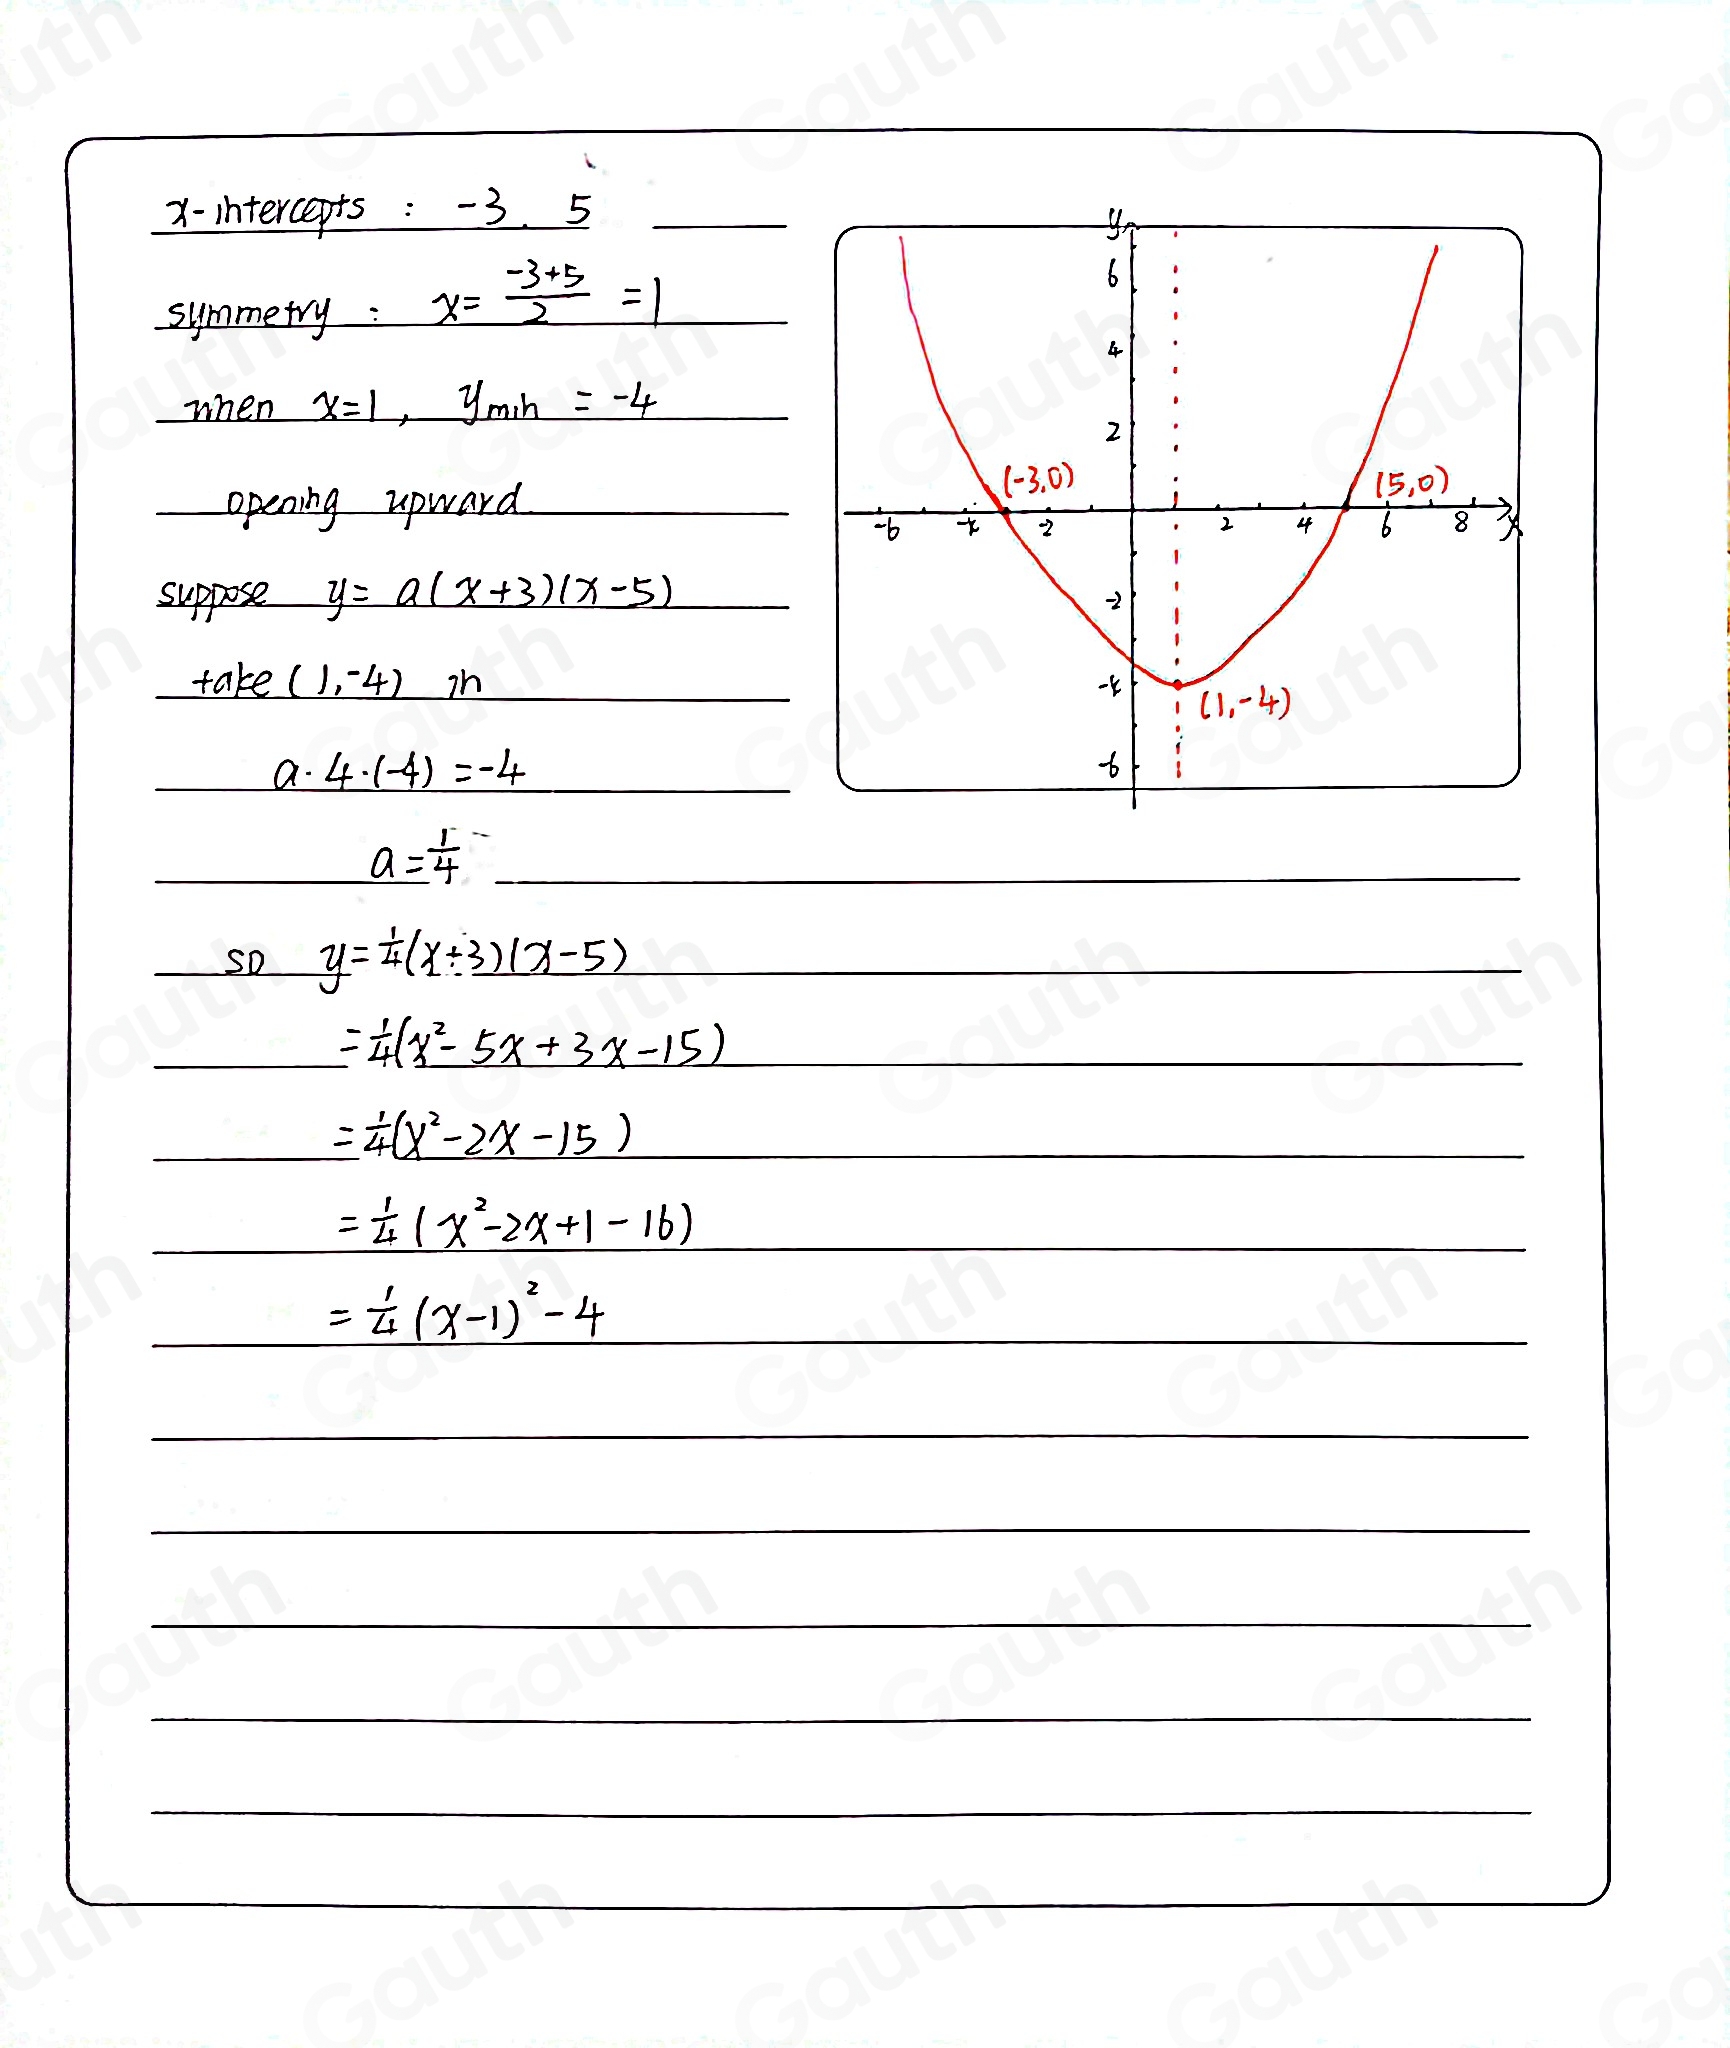 x-intercepts : -3. 5
symmetry : x = \frac{-3+5}{2} = 1
when x=1, y_min = -4
opening upward
suppose y = a(x+3)(x-5)
take (1,-4) in
a·4·(-4) = -4
a = \frac{1}{4}
so y = \frac{1}{4}(x+3)(x-5)
= \frac{1}{4}(x²- 5x+3x-15)
= \frac{1}{4}(x²-2x-15)
= \frac{1}{4}(x²-2x+1-16)
= \frac{1}{4}(x-1)²-4
y
6
4
2
(-3,0)
(5,0)
-6 -4 -2 2 4 6 8 x
-2
-4
(1,-4)
-6
Gauth